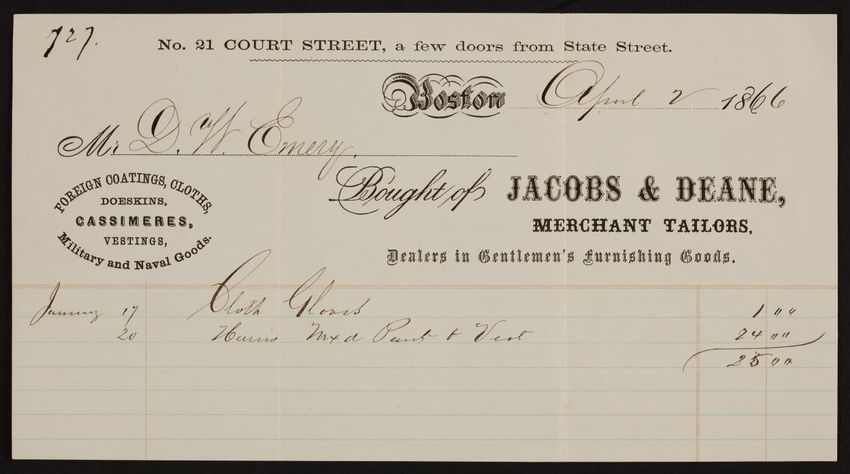 727.
No. 21 COURT STREET, a few doors from State Street.
Boston April 2 1866
Mr. D. W. Emery.
Bought of JACOBS & DEANE,
MERCHANT TAILORS,
Dealers in Gentlemen's Furnishing Goods.
FOREIGN COATINGS, CLOTHS,
DOESKINS,
CASSIMERES,
VESTINGS,
Military and Naval Goods.
January 17 Cloth Gloves 1 00
20 Harris Mxd Pant & Vest 24 00
25 00